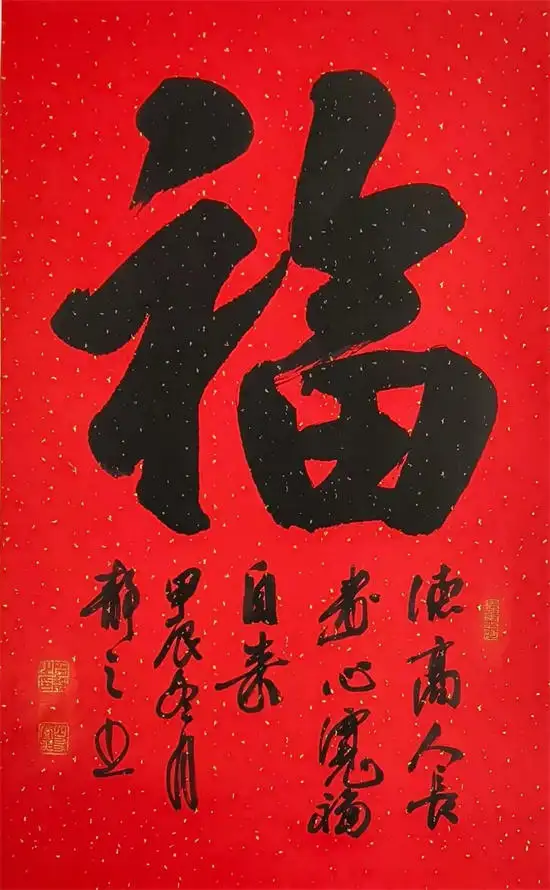 福
德高人長
壽心寬福
自来
甲辰冬月
静之书